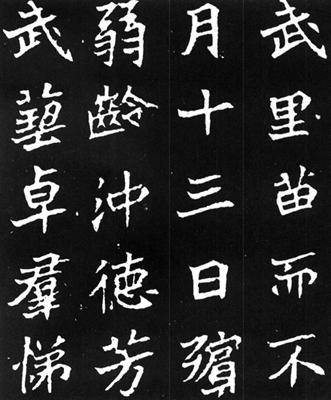 武里苗而不
月十三日殯
弱齡沖德芳
武藝卓羣悌